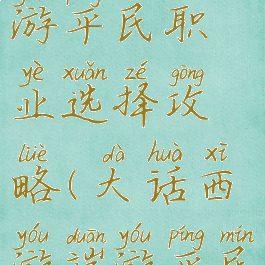 游平民职
yè xuǎn zé gōng
业选择攻
lüè dà huà xī
略(大话西
yóu duān yóu píng mín